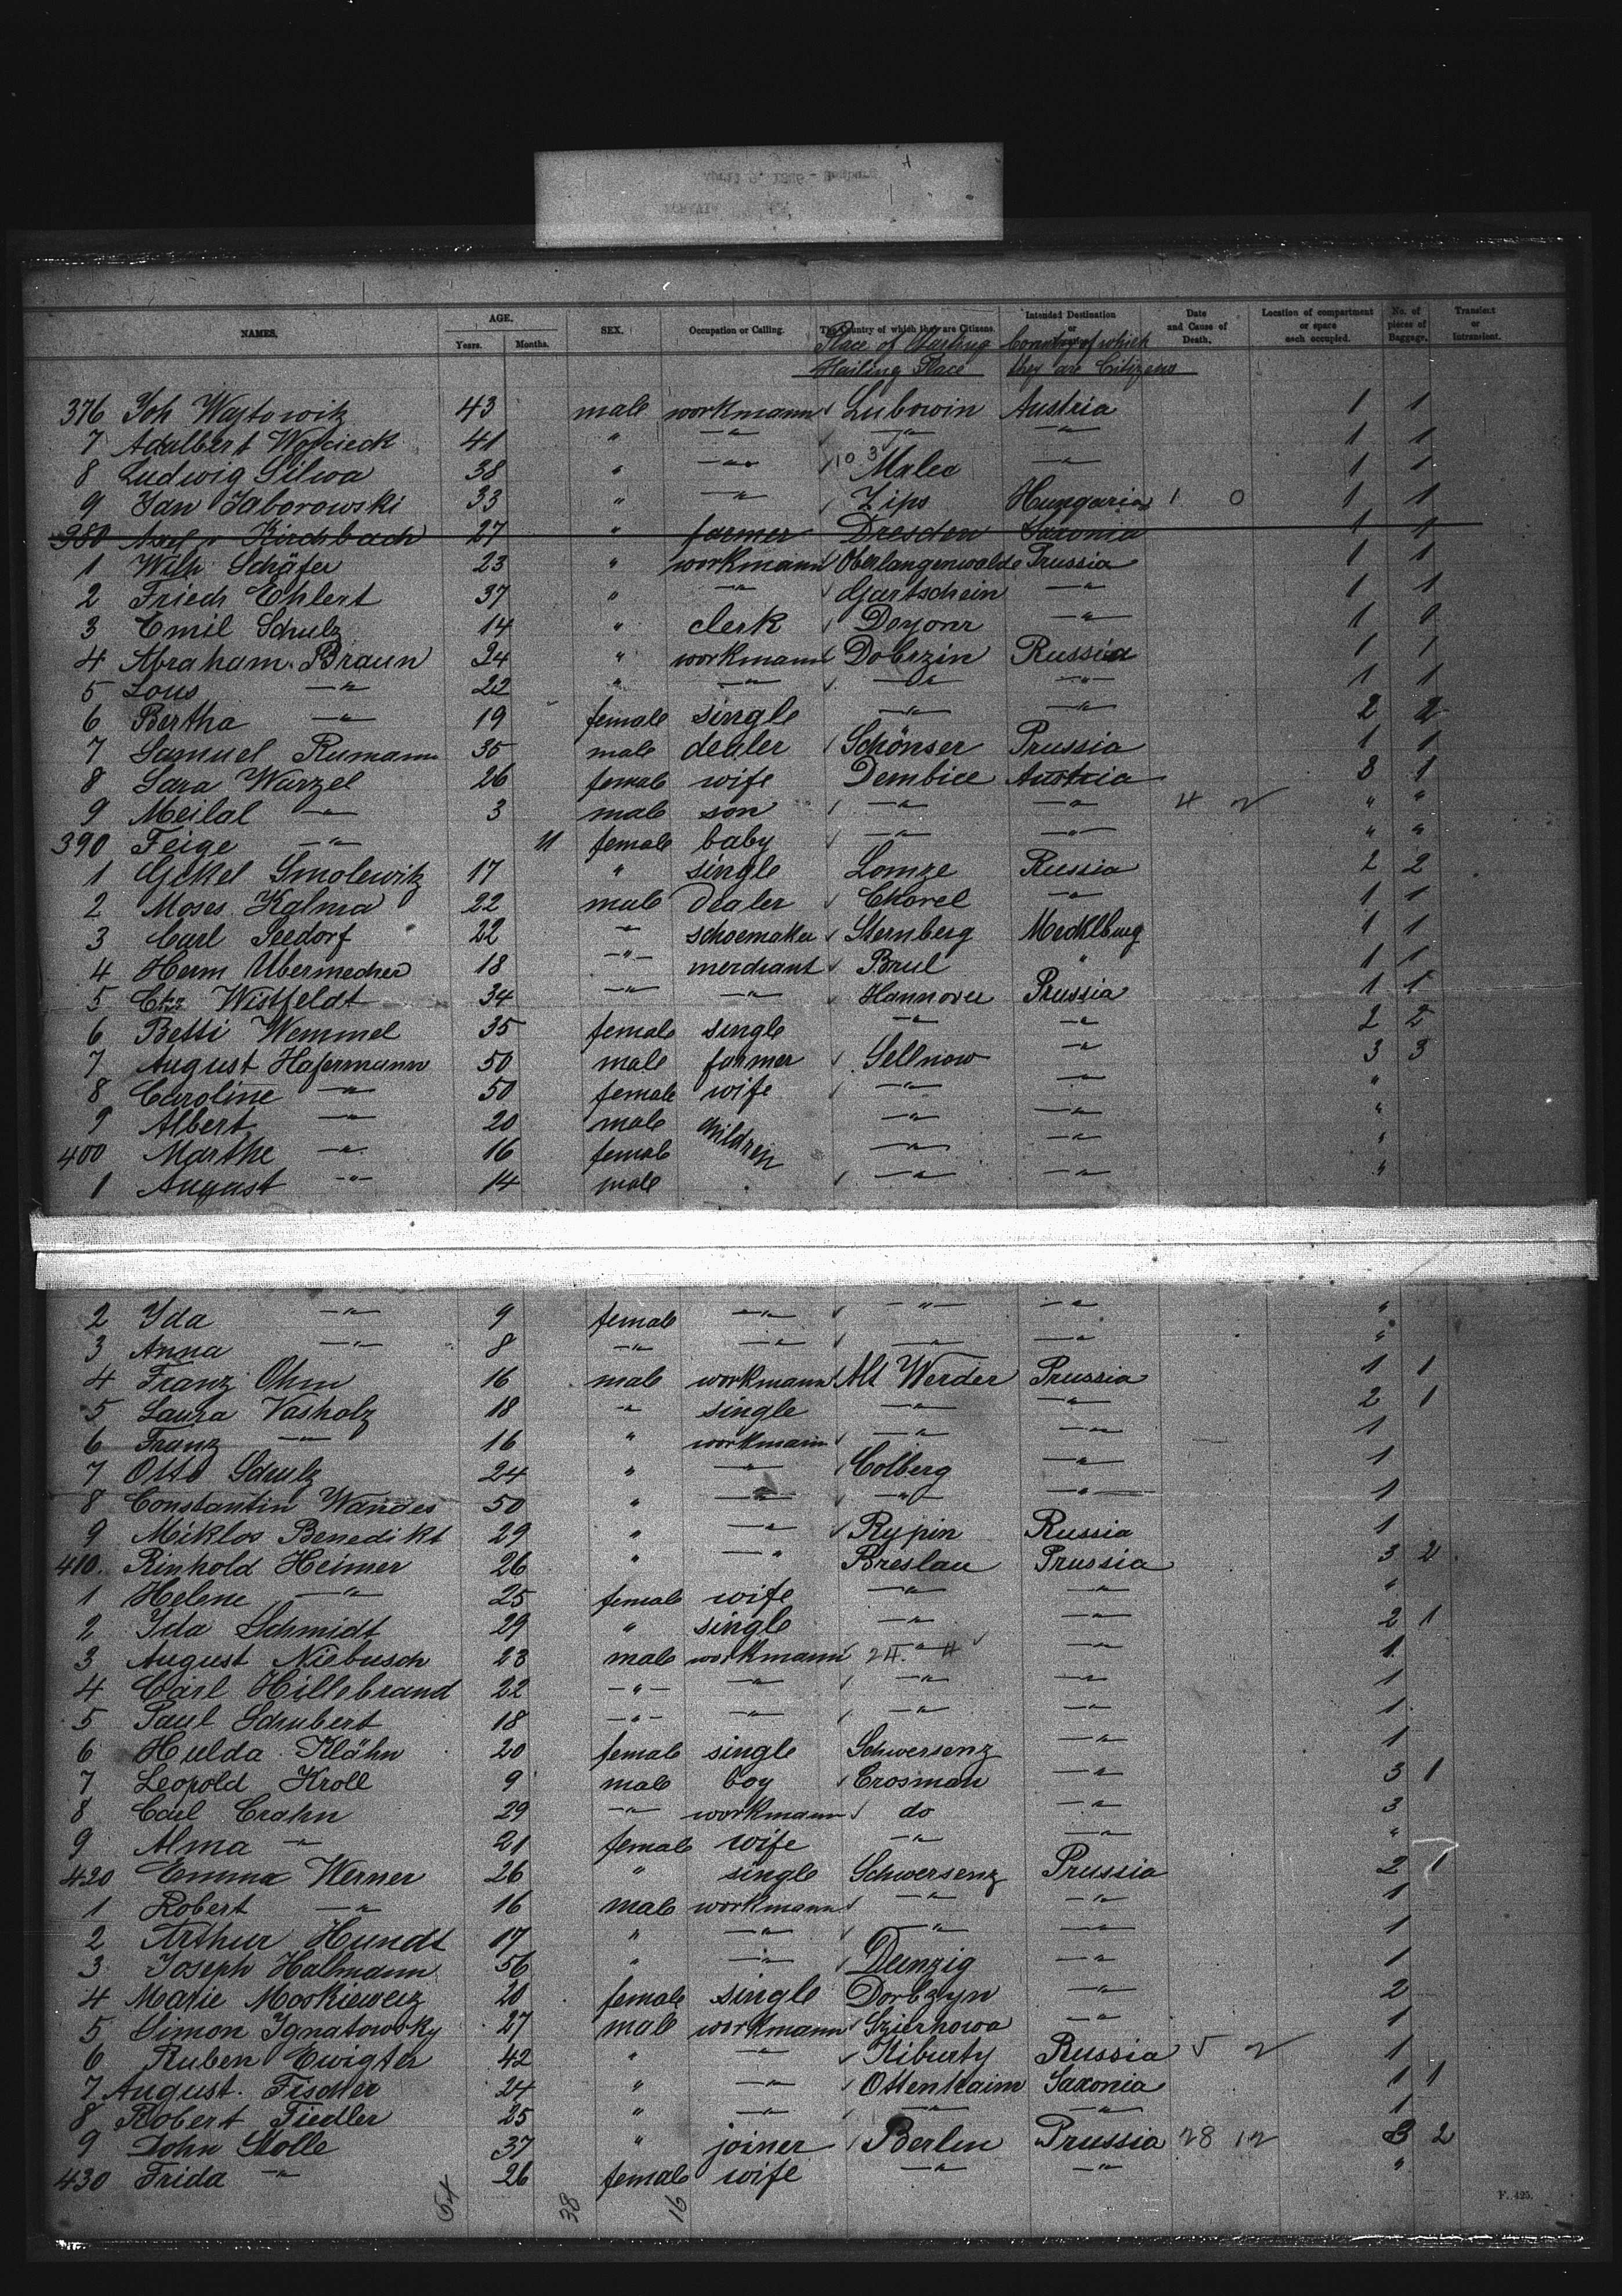 NAMES. AGE. SEX. Occupation or Calling. The Country of which they are Citizens. Intended Destination or Date and Cause of Death. Location of compartment or space each occupied. No. of pieces of Baggage. Transient or Intransient.
Years. Months.
Place of Starting Country of which
Hailing Place they are Citizens
376 Joh Wajtowitz 43 male workmann Lubowin Austria 1 1
7 Adalbert Wojcieck 41 " -"- -"- -"- 1 1
8 Ludwig Silwa 38 " -"- 10 3 Malec -"- 1 1
9 Jan Jaborowski 33 " -"- Zips Hungaria 1 0 1 1
380 v Kirchbach 27 " farmer Dresden Saxonia 1 1
1 Wilh Schäfer 23 " workmann Oberlangenwalde Prussia 1 1
2 Friedr Ehlert 37 " -"- Gartschein -"- 1 1
3 Emil Schulz 14 " clerk Doyonr -"- 1 0
4 Abraham Braun 24 " workmann Dobrzin Russia 1 1
5 Lous -"- 22 " -"- -"- -"- 1 1
6 Bertha -"- 19 female single -"- -"- 2 2
7 Samuel Rumann 35 male dealer Schönser Prussia 1 1
8 Sara Wurzel 26 female wife Dembice Austria 3 1
9 Meilal -"- 3 male son -"- -"- 4 2 " "
390 Feige -"- 11 female baby -"- -"- " "
1 Gekel Smolewitz 17 " single Lomze Russia 2 2
2 Moses Kalma 22 male Dealer Chorel -"- 1 1
3 Carl Seedorf 22 -"- schoemaker Sternberg Mecklburg 1 1
4 Herm Ubermecher 18 -"- merchant Brul " 1 1
5 Chr Wistfeldt 34 -"- -"- Hannover Prussia 1 1
6 Betti Wemmel 35 female single -"- -"- 2 2
7 August Hafermann 50 male farmer Sellnow -"- 3 3
8 Caroline -"- 50 female wife -"- -"- "
9 Albert -"- 20 male children -"- -"- "
400 Marthe -"- 16 female -"- -"- "
1 August -"- 14 male -"- -"- "
2 Ida -"- 9 female -"- -"- -"- "
3 Anna -"- 8 -"- -"- -"- -"- "
4 Franz Ohm 16 male workmann Alt Werder Prussia 1 1
5 Laura Vasholz 18 -"- single -"- -"- 2 1
6 Franz -"- 16 " workmann -"- -"- 1
7 Otto Schulz 24 " -"- Colberg -"- 1
8 Constantin Wandes 50 " -"- -"- -"- 1
9 Miklos Benedikt 29 " -"- Rypin Russia 1
410. Rinhold Heimer 26 " -"- Breslau Prussia 3 2
1 Helene -"- 25 female wife -"- -"- "
2 Ida Schmidt 29 " single -"- -"- 2 1
3 August Niebusch 23 male workmann -"- -"- 1
4 Carl Hillebrand 22 -"- -"- -"- -"- 1
5 Paul Schubert 18 -"- -"- -"- -"- 1
6 Hulda Klähn 20 female single Schwersenz -"- 1
7 Leopold Kroll 9 male boy Crosman -"- 3 1
8 Carl Crahn 29 -"- workmann do -"- 3
9 Alma -"- 21 female wife -"- -"- "
420 Emma Werner 26 " single Schwersenz Prussia 2 1
1 Robert -"- 16 male workmann -"- -"- 1
2 Arthur Hundt 17 " -"- -"- -"- 1
3 Joseph Halmann 56 " -"- Danzig -"- 1
4 Marie Moskiewerz 20 female single Dorbzyn -"- 2
5 Simon Ignatowsky 27 male workmann Szierhowa -"- 1
6 Ruben Ewigter 42 " -"- Kiburty Russia 5 2 1
7 August Fischer 24 " -"- Ottenhaim Saxonia 1 1
8 Robert Fiedler 25 " -"- -"- -"- 1
9 John Stolle 37 " joiner Berlin Prussia 28 12 3 2
430 Frida -"- 26 female wife -"- -"- "
64 38 16
F. 425.